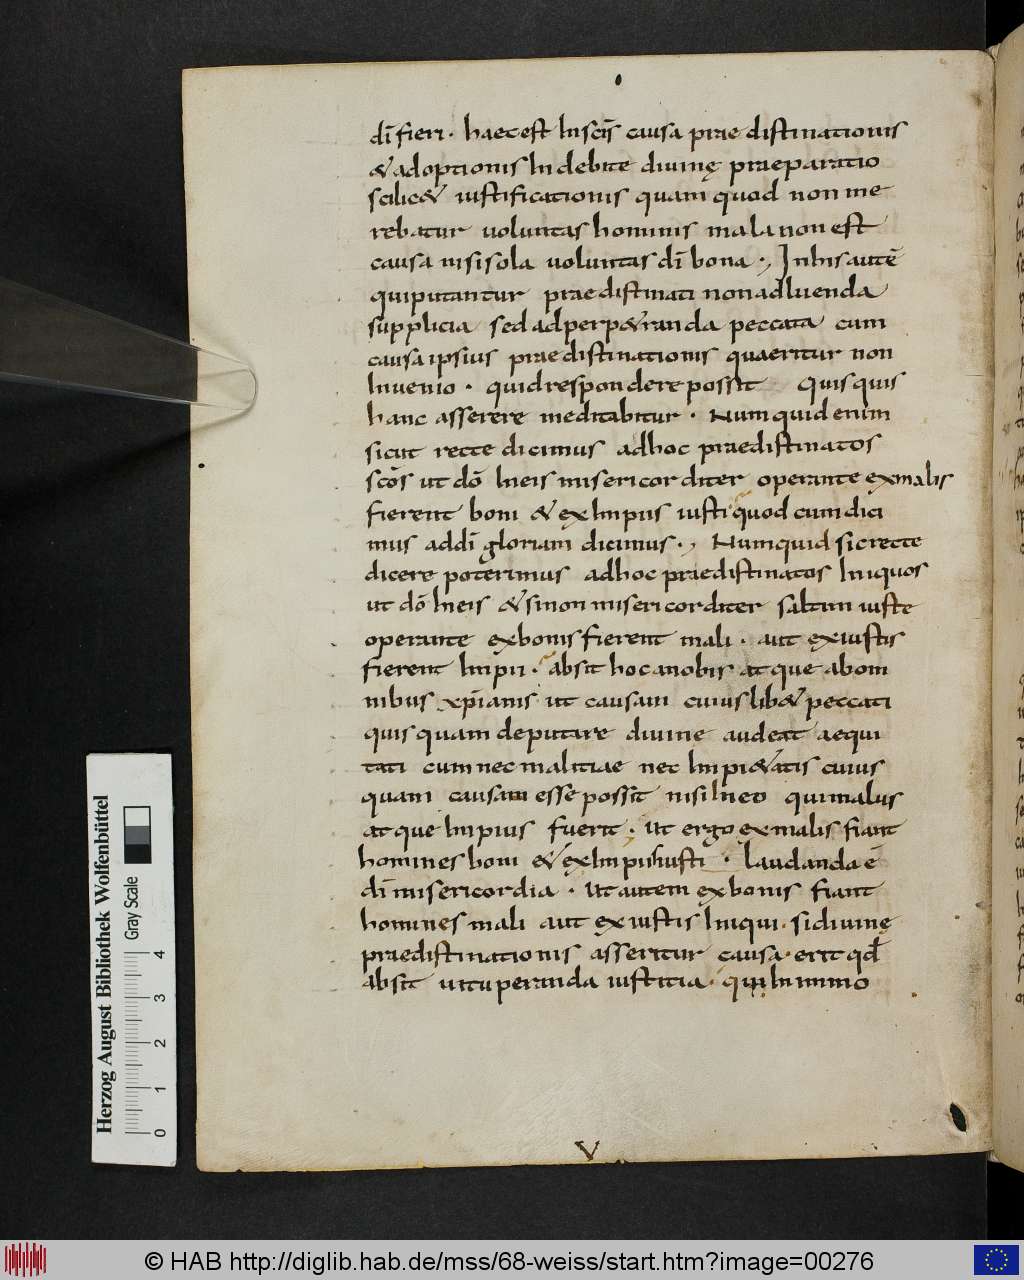 dī fieri · haec est In scīs causa praedistinationis
& adoptionis Indebite divinę praeparatio
scilic& iustificationis quam quod non me
rebatur voluntas hominis mala non est
causa nisi sola voluntas dī bona ·, In his autē
qui putantur praedistinati non ad luenda
supplicia sed ad perp&randa peccata cum
causa ipsius praedistinationis quaeritur non
Invenio · quid respondere possit quisquis
hanc asserere meditabitur · Numquid enim
sicut recte dicimus ad hoc praedistinatos
scōs ut dō In eis misericorditer operante ex malis
fierent boni & ex Impiis iusti quod cum dici
mus ad dī gloriam dicimus ·, Numquid sic recte
dicere poterimus ad hoc praedistinatos Iniquos
ut dō In eis & si non misericorditer saltim iuste
operante ex bonis fierent mali · aut ex iustis
fierent Impii · absit hoc a nobis atque ab om
nibus xp̄ianis ut causam cuiuslib& peccati
quisquam deputare divine audeat aequi
tati cum nec malitiae nec Impi&atis cuius
quam causam esse possit nisi In eo qui malus
atque Impius fuerit · ut ergo ex malis fiant
homines boni & ex Impiis iusti · laudanda ē
dī misericordia · ut autem ex bonis fiant
homines mali aut ex iustis Iniqui · si divinę
praedistinationis asseritur causa · erit qđ
absit vituperanda iustitia · qui In immo
V
Herzog August Bibliothek Wolfenbüttel
Gray Scale
0 1 2 3 4
© HAB http://diglib.hab.de/mss/68-weiss/start.htm?image=00276